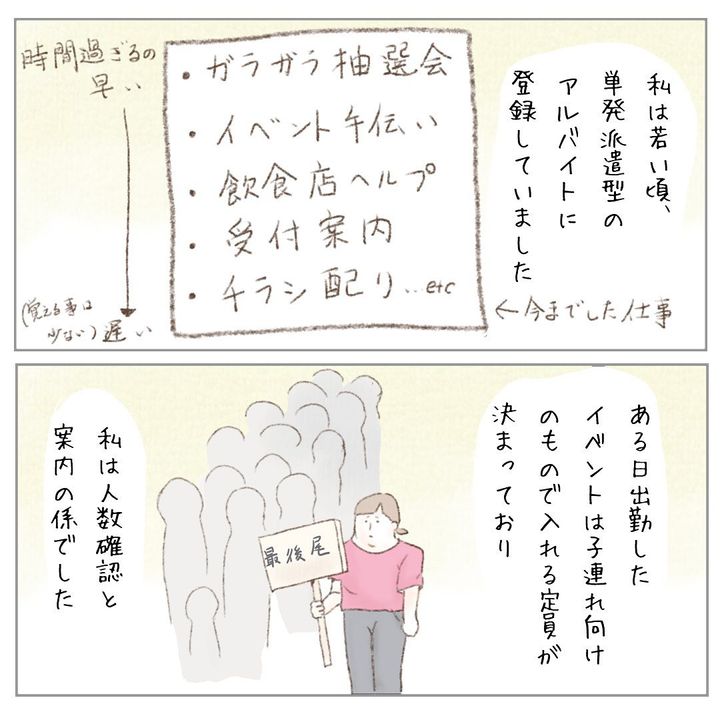 私は若い頃、
単発派遣型の
アルバイトに
登録していました
時間過ぎるの
早い
・ガラガラ抽選会
・イベント手伝い
・飲食店ヘルプ
・受付案内
・チラシ配り..etc
(覚える事は
少ない)遅い
←今までした仕事
ある日出勤した
イベントは子連れ向け
のもので入れる定員が
決まっており
最後尾
私は人数確認と
案内の係でした